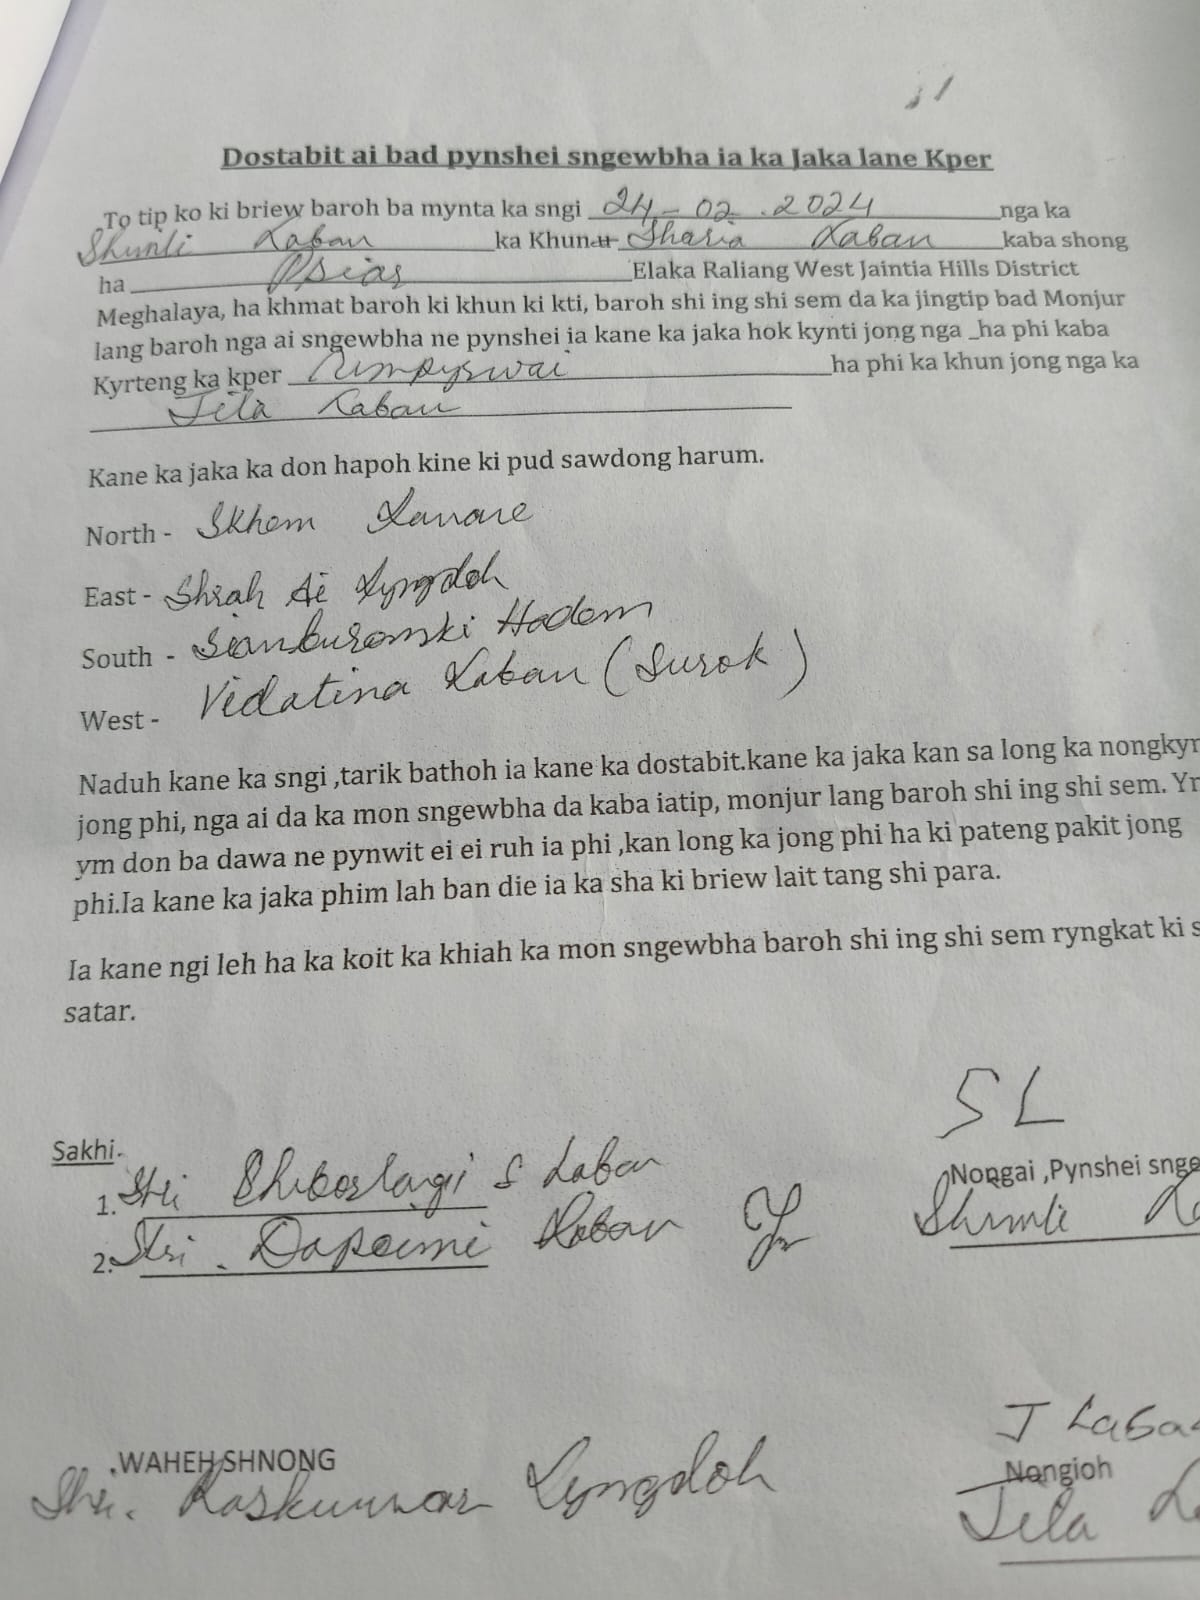 Dostabit ai bad pynshei sngewbha ia ka Jaka lane Kper
To tip ko ki briew baroh ba mynta ka sngi 24-02.2024 nga ka
Shunli Laban ka Khun Sharia Laban kaba shong
ha Psiar Elaka Raliang West Jaintia Hills District
Meghalaya, ha khmat baroh ki khun ki kti, baroh shi ing shi sem da ka jingtip bad Monjur
lang baroh nga ai sngewbha ne pynshei ia kane ka jaka hok kynti jong nga _ha phi kaba
Kyrteng ka kper ha phi ka khun jong nga ka
Jela Laban
Kane ka jaka ka don hapoh kine ki pud sawdong harum.
North - Skhem Lanare
East - Shrah Ai Lyngdoh
South - Hadem
West - Vidatina Laban (Surok)
Naduh kane ka sngi ,tarik bathoh ia kane ka dostabit.kane ka jaka kan sa long ka nongkyn
jong phi, nga ai da ka mon sngewbha da kaba iatip, monjur lang baroh shi ing shi sem. Yn
ym don ba dawa ne pynwit ei ei ruh ia phi ,kan long ka jong phi ha ki pateng pakit jong
phi.Ia kane ka jaka phim lah ban die ia ka sha ki briew lait tang shi para.
Ia kane ngi leh ha ka koit ka khiah ka mon sngewbha baroh shi ing shi sem ryngkat ki s
satar.
S L
Sakhi.
Nongai ,Pynshei snge
1. Shri S Laban
Shunli La
2. Shri. Dapoimi Laban
J Laba
.WAHEH SHNONG
Nongioh
Shri. Raskunwar Lyngdoh
Jela L